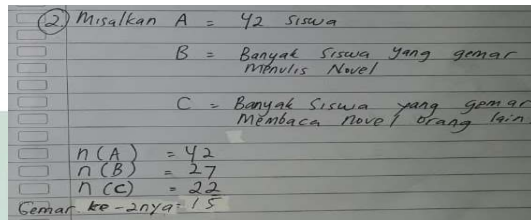 2) Misalkan A = 42 siswa
B = Banyak siswa yang gemar
menulis Novel
C = Banyak siswa yang gemar
Membaca novel orang lain
n (A) = 42
n (B) = 27
n (C) = 22
Gemar ke-2nya = 15